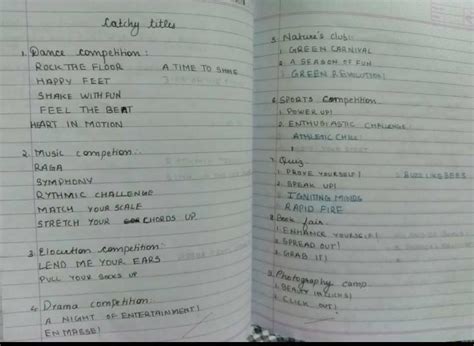 Catchy titles
1. Dance competition:
ROCK THE FLOOR A TIME TO SHAKE
HAPPY FEET
SHAKE WITH FUN
FEEL THE BEAT
HEART IN MOTION
2. Music competion:
RAGA
SYMPHONY
RYTHMIC CHALLENGE
MATCH YOUR SCALE
STRETCH YOUR CHORDS UP
3. Elocution competition:
LEND ME YOUR EARS
PULL YOUR SOCKS UP
4. Drama competition:
A NIGHT OF ENTERTAINMENT!
EN MASSE!
5. Nature's club:
1. GREEN CARNIVAL
2. A SEASON OF FUN
3. GREEN REVOLUTION!
6. SPORTS Competition
1. POWER UP!
2. ENTHUSIASTIC CHALLENGE
ATHLETIC CHILL!
7. Quiz
1. PROVE YOURSELF! BUZZ LIKE BEES
2. SPEAK UP!
3. IGNITING MINDS
RAPID FIRE
8. Book fair
1. ENHANCE YOURSELF!
2. SPREAD OUT!
3. GRAB IT!
9. Photography camp
1. BEAUTY IN CLICKS!
2. CLICK OUT!